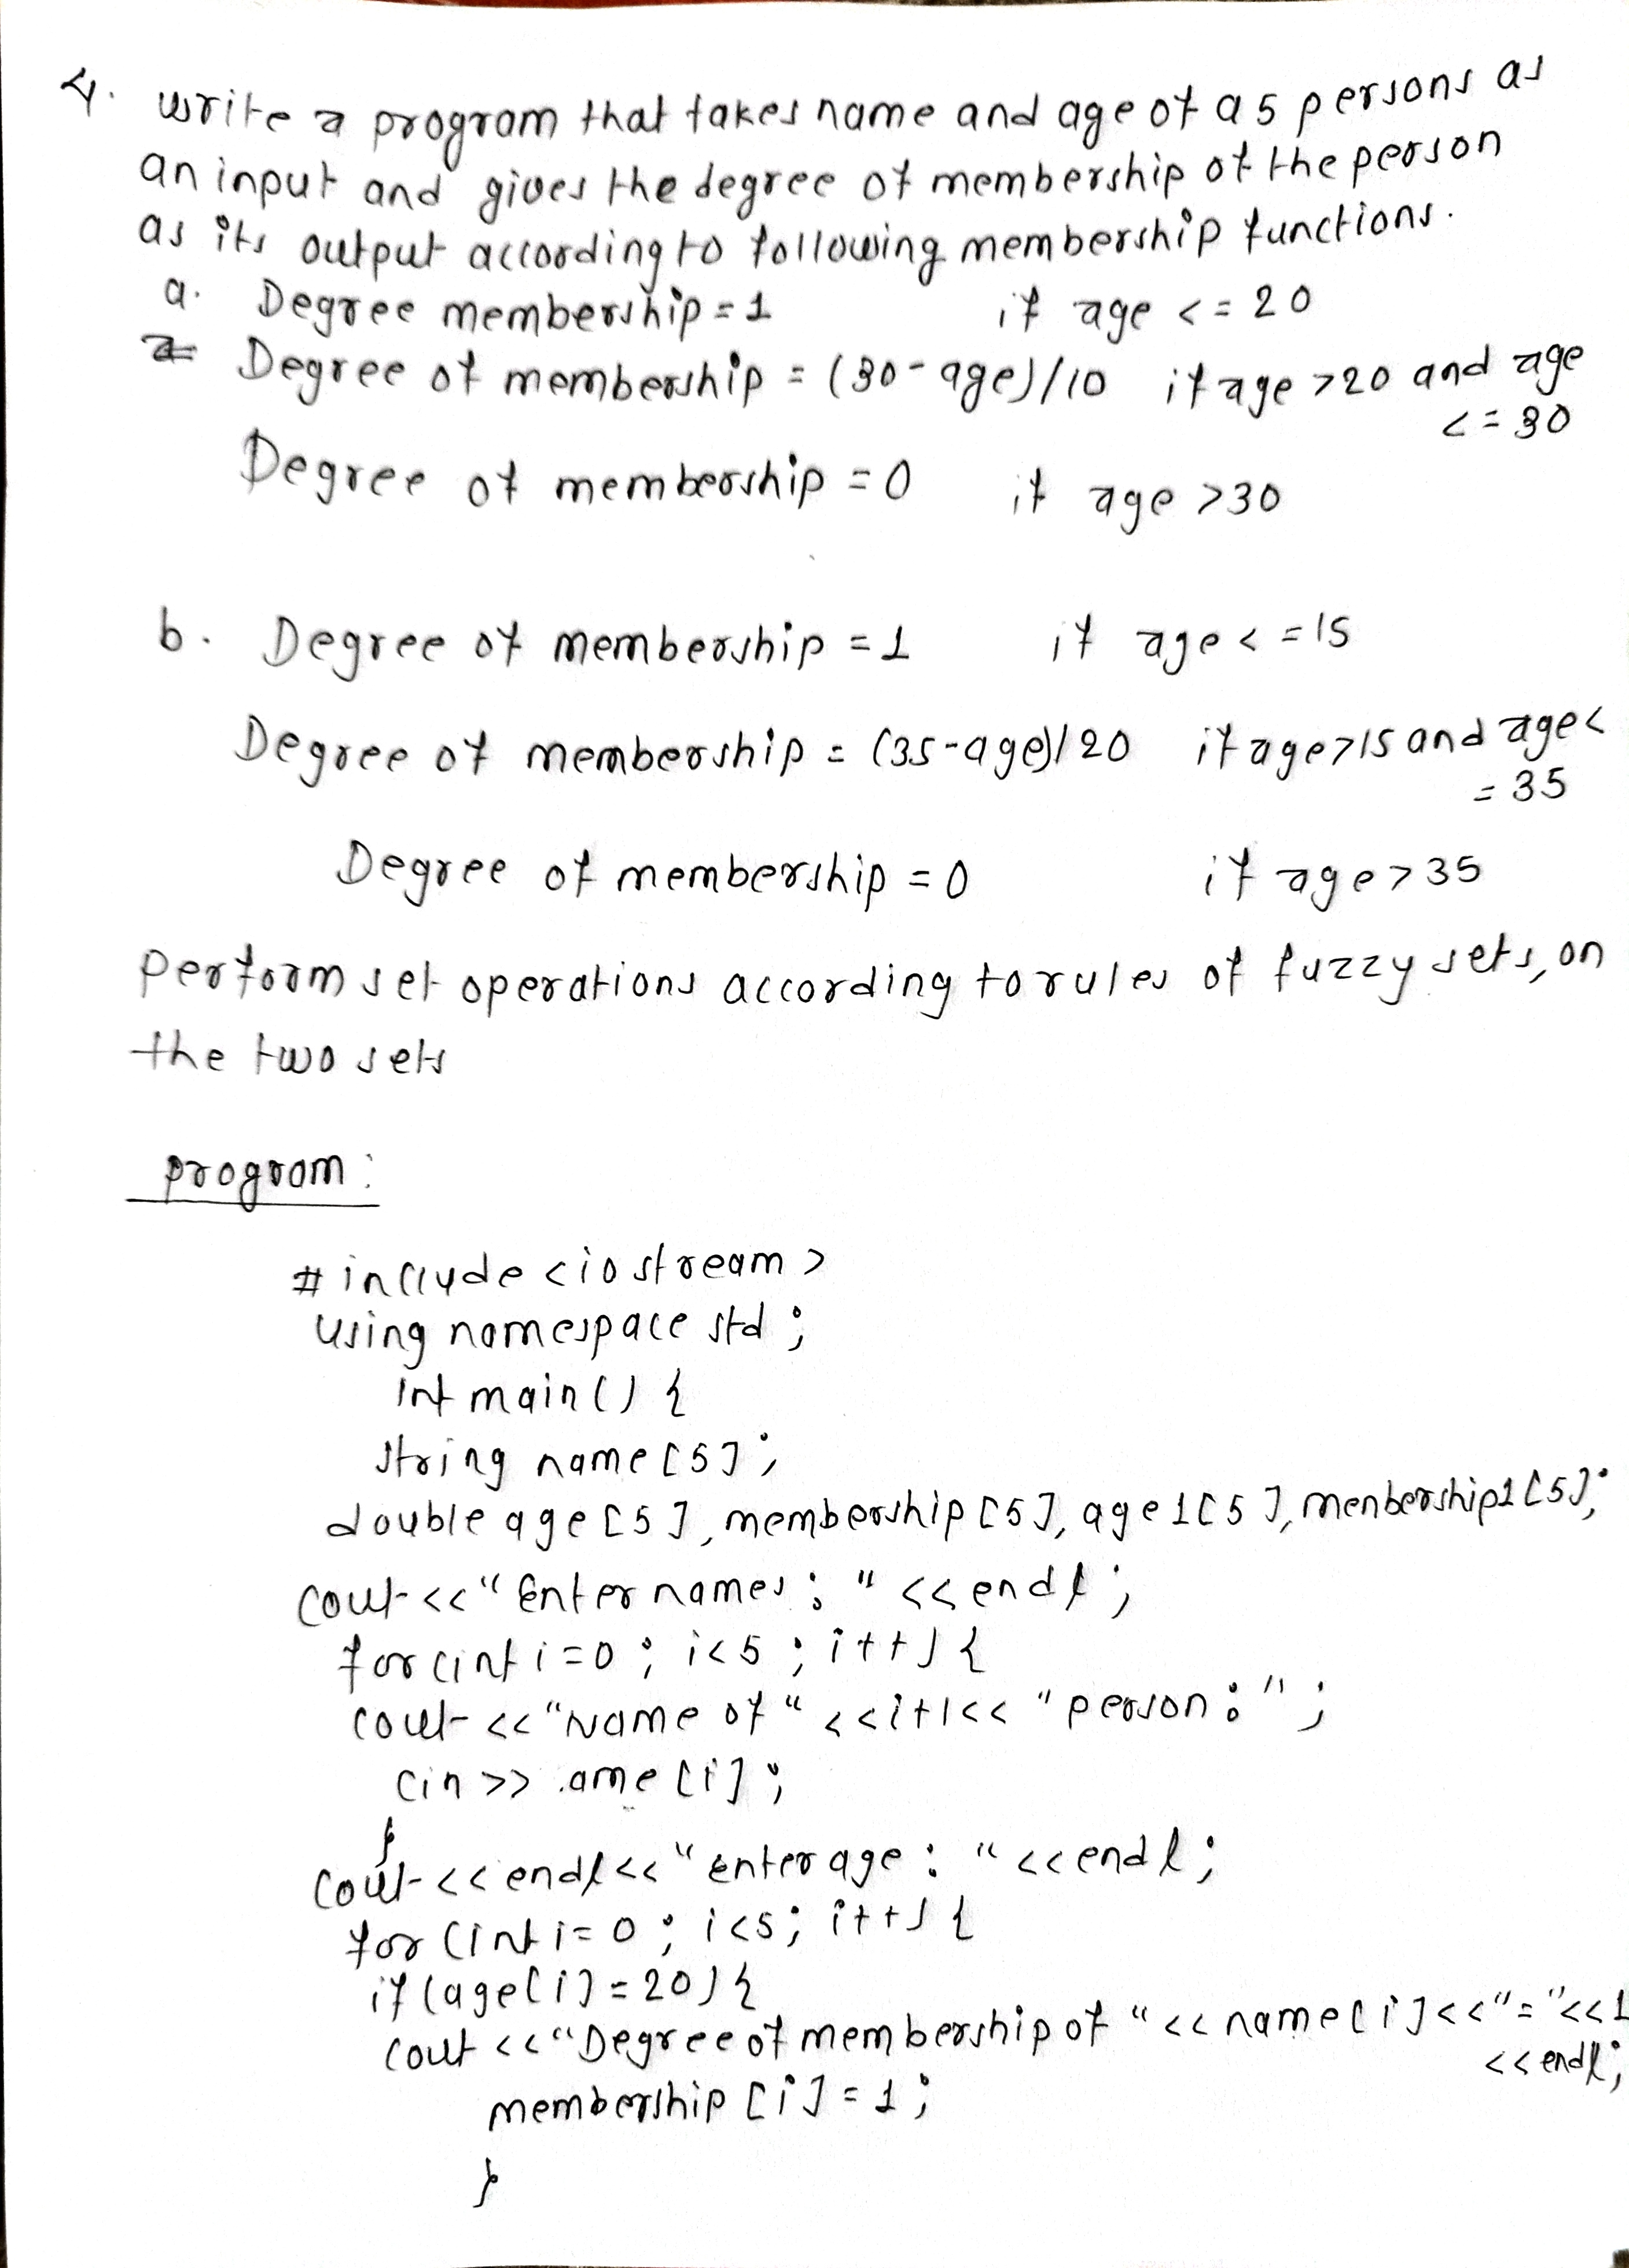 4. Write a program that takes name and age of a 5 persons as
an input and gives the degree of membership of the person
as its output according to following membership functions.
a. Degree membership = 1 if age <= 20
Degree of membership = (30-age)/10 if age >20 and age
<= 30
Degree of membership = 0 if age >30
b. Degree of membership = 1 if age <= 15
Degree of membership = (35-age)/20 if age>15 and age<
= 35
Degree of membership = 0 if age > 35
Perform set operations according to rules of fuzzy sets, on
the two sets
program:
# include <iostream>
using namespace std;
int main() {
string name[5];
double age[5], membership[5], age1[5], menbership1[5];
cout<<"Enter names: "<<endl;
for(int i=0; i<5; i++) {
cout <<"Name of "<<i+1<< "person:";
cin >> ame[i];
}
cout<<endl<<"enter age: "<<endl;
for(int i=0; i<5; i++) {
if(age[i]=20) {
cout <<"Degree of membership of "<< name[i]<<"="<<1
<<endl;
membership[i]=1;
}